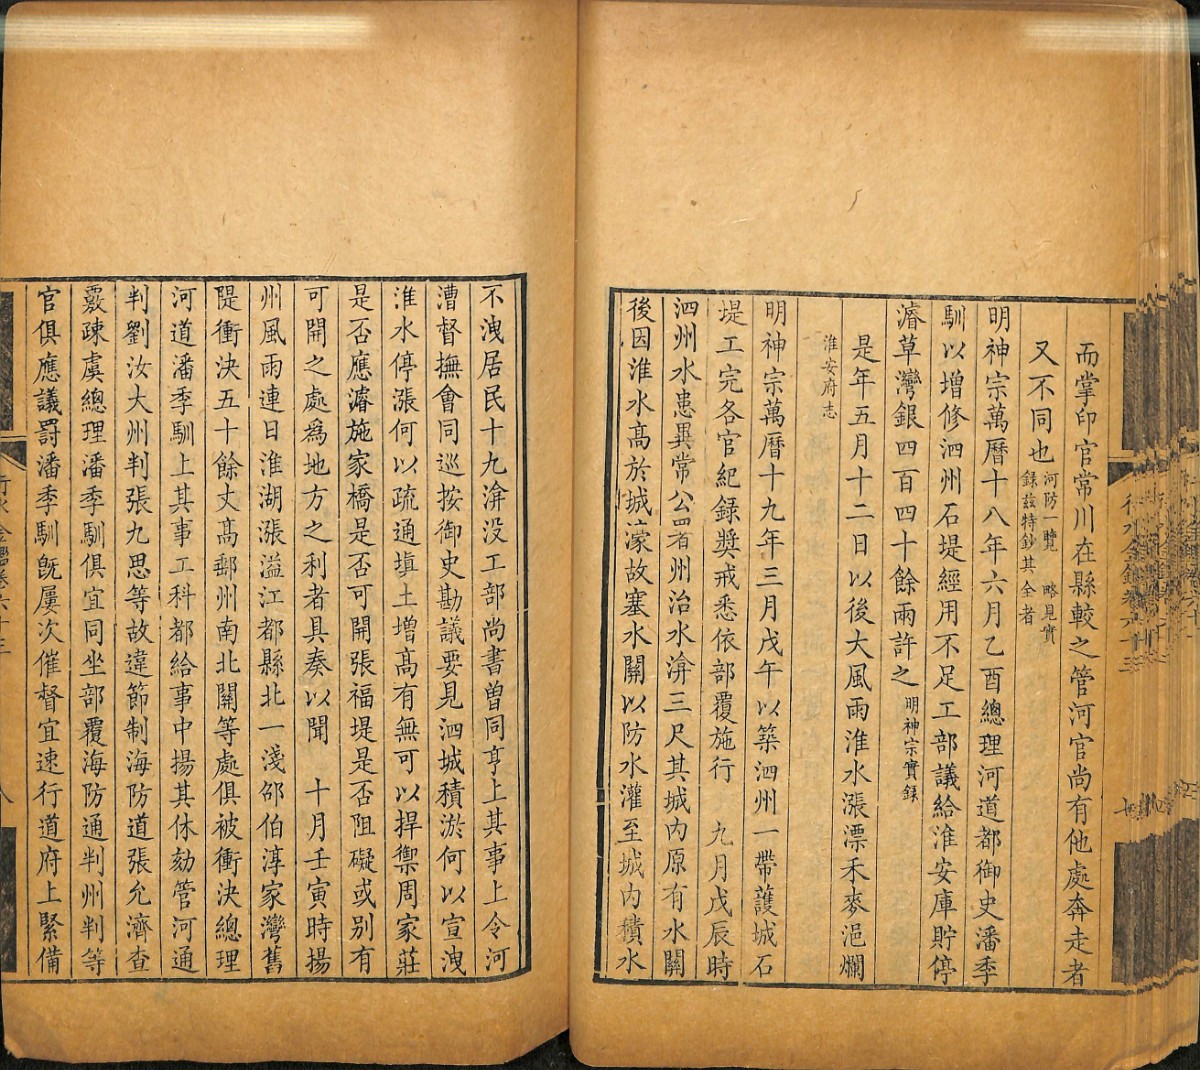 而掌印官常川在縣較之管河官尚有他處奔走者
又不同也河防一覽 略見實
錄茲特鈔其全者
明神宗萬曆十八年六月乙酉總理河道都御史潘季
馴以增修泗州石堤經用不足工部議給淮安庫貯停
濬草灣銀四百四十餘兩許之明神宗實錄
是年五月十二日以後大風雨淮水漲漂禾麥浥爛
淮安府志
明神宗萬曆十九年三月戊午以築泗州一帶護城石
堤工完各官紀錄獎戒悉依部覆施行 九月戊辰時
泗州水患異常公署州治水渰三尺其城內原有水關
後因淮水高於城濠故塞水關以防水灌至城內積水
不洩居民十九渰没工部尚書曾同亨上其事上令河
漕督撫會同巡按御史勘議要見泗城積淤何以宣洩
淮水停漲何以疏通填土增高有無可以捍禦周家莊
是否應濬施家橋是否可開張福堤是否阻礙或別有
可開之處為地方之利者具奏以聞 十月壬寅時揚
州風雨連日淮湖漲溢江都縣北一淺邵伯淳家灣舊
隄衝決五十餘丈高郵州南北關等處俱被衝決總理
河道潘季馴上其事工科都給事中揚其休劾管河通
判劉汝大州判張九思等故違節制海防道張允濟查
覈疎虞總理潘季馴俱宜同坐部覆海防通判州判等
官俱應議罰潘季馴旣屢次催督宜速行道府上緊備
行水金鑑卷六十三